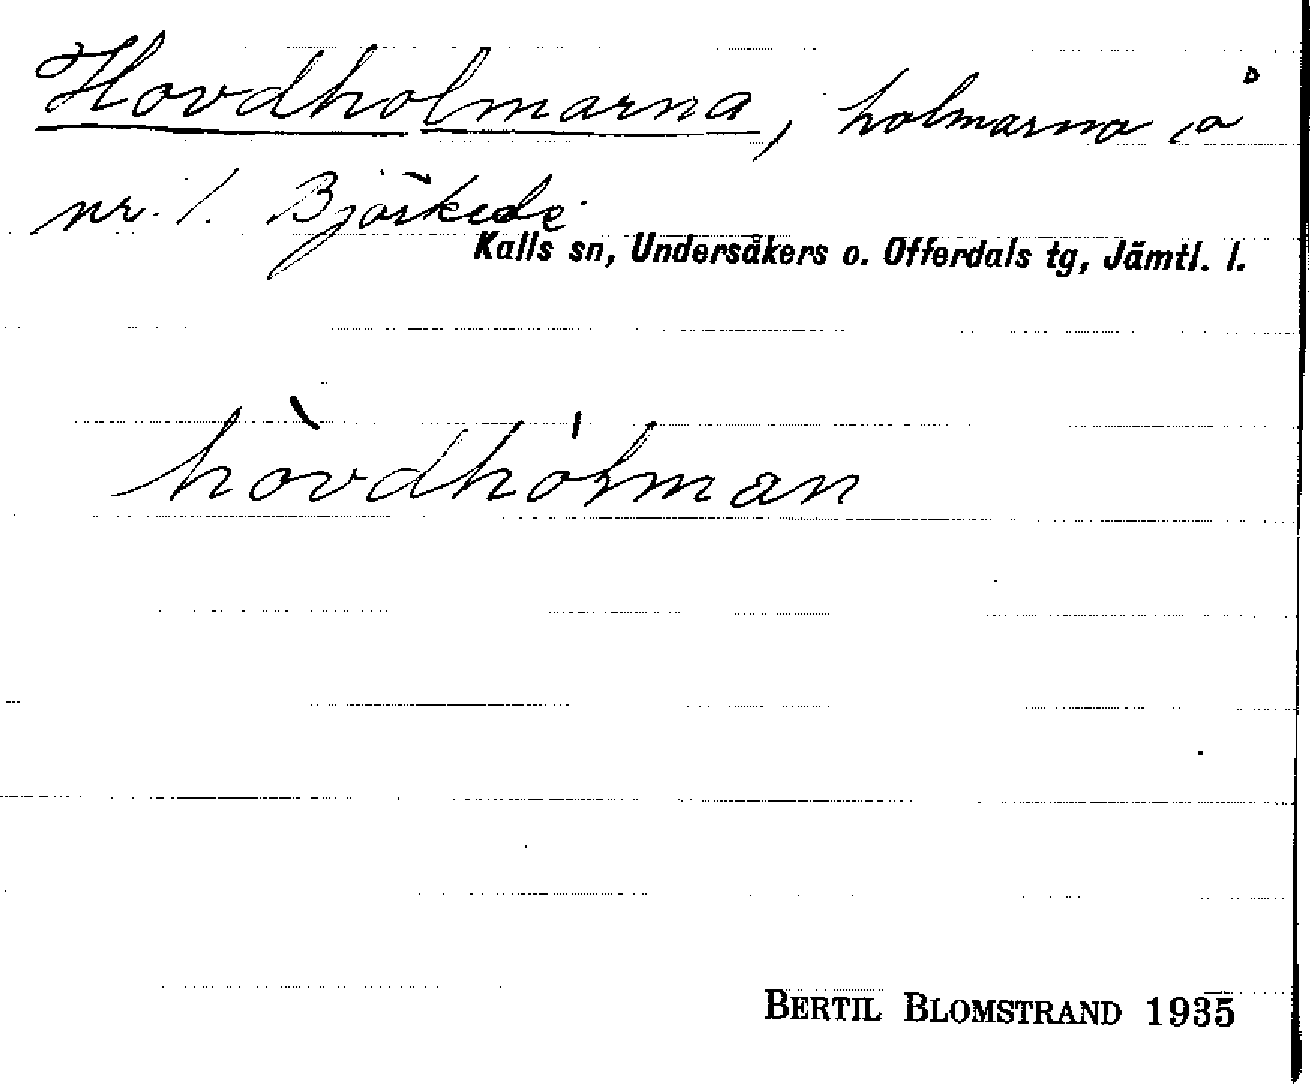 Hovdholmarna, holmarna å
nr. 1. Björkede
Kalls sn, Undersåkers o. Offerdals tg, Jämtl. l.
hòvdhólman
BERTIL BLOMSTRAND 1935